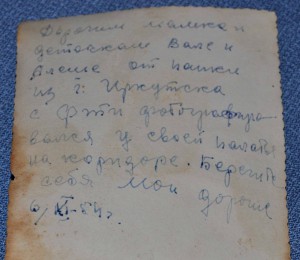 Дорогим мамке и
деточкам Вале и
Алеше от папки
из г. Иркутска
с Фэти фотографиро-
вался у своей палаты
на коридоре. Берегите
себя мои дорогие
6/XI-54г.